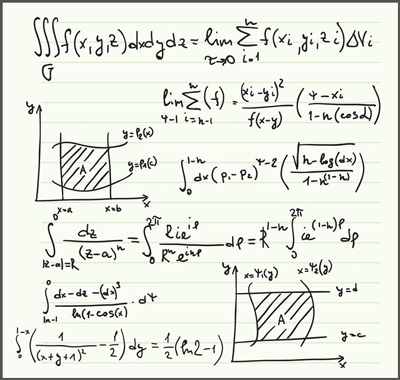 ∭f(x,y,z)dxdydz = lim Σ f(xi,yi,zi)ΔVi
G τ→0 i=1 n
lim Σ (f) = (xi-yi)²/f(x-y) (Ψ-xi/1-n(cosd))
Ψ-1 i=n-1 n
y
y=φ2(x)
A
y=φ1(x)
0 x=a x=b x
∫0^1-n dx(p1-p2)^Ψ-2 (√n-log(dx)/1-n^(1-n))
∫|z-a|=R dz/(z-a)^n = ∫0^2π Rie^iφ/R^n e^inφ dφ = R^1-n ∫0^2π ie^(1-n)φ dφ
∫ln-1^0 dx-dz-(dx)³/ln(1-cos x) · dΨ
y x=Ψ1(y) x=Ψ2(y)
y=d
A
y=c
x
∫0^1-x (1/(x+y+1)² - 1/2) dy = 1/2 (ln2-1)